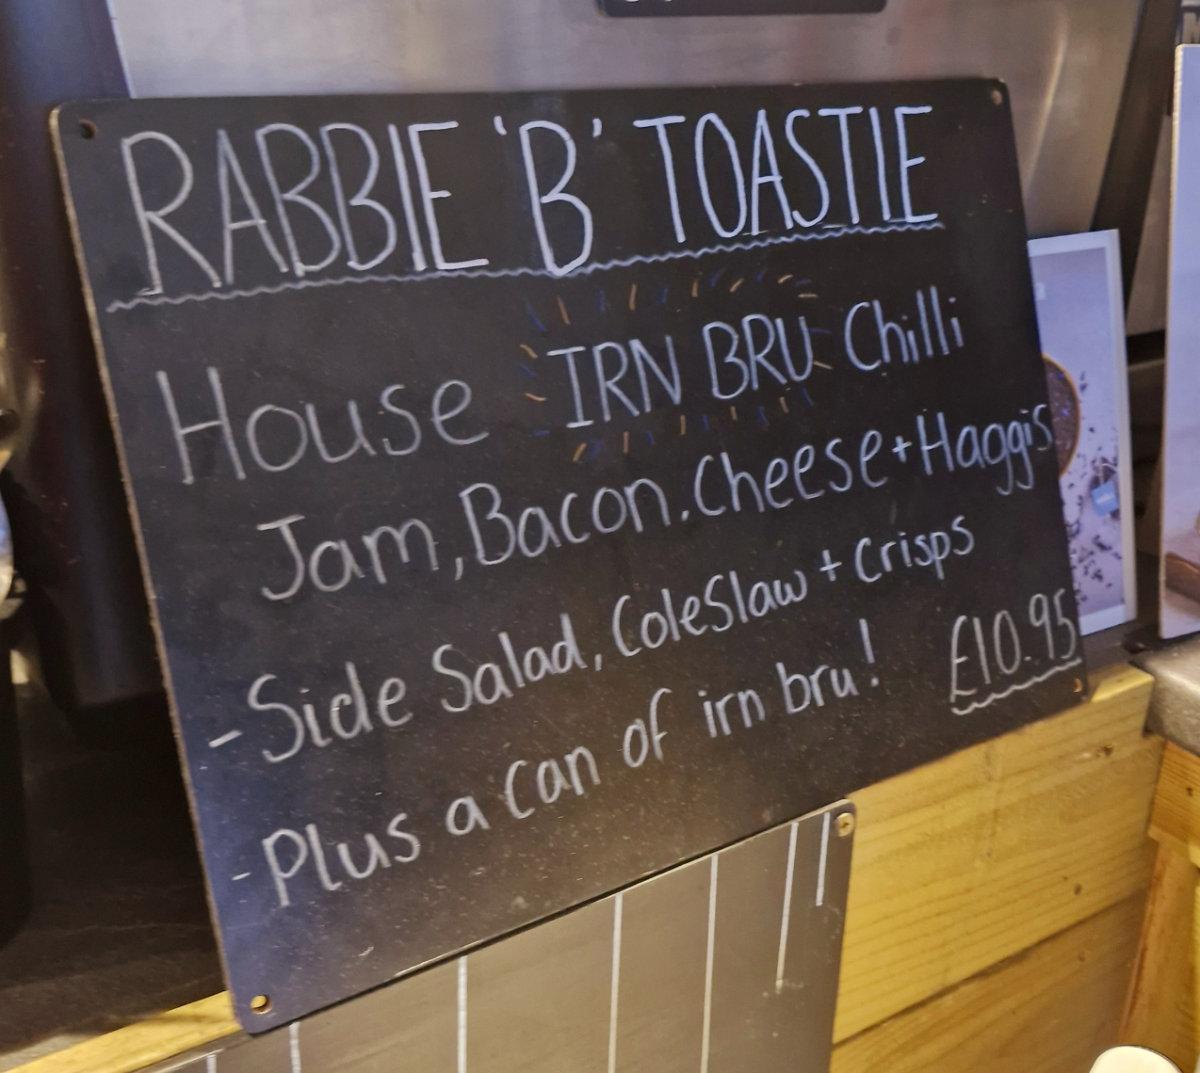 RABBIE 'B' TOASTIE
House IRN BRU Chilli
Jam, Bacon. Cheese + Haggis
- Side Salad, ColeSlaw + Crisps
- Plus a can of irn bru! £10.95